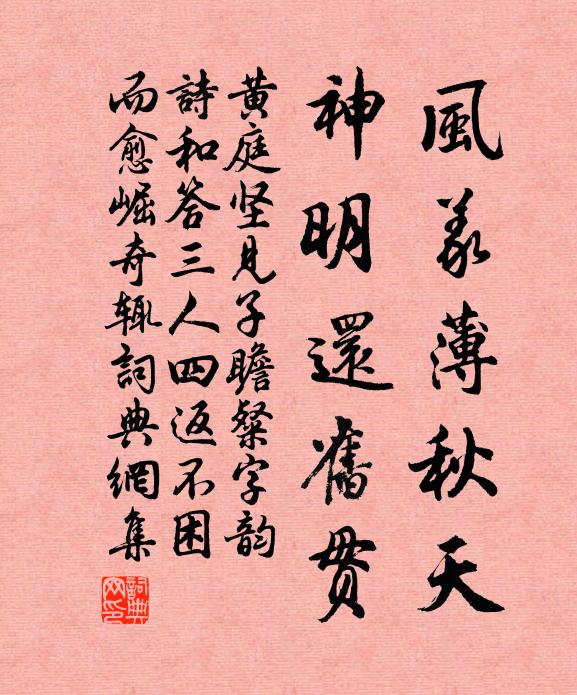 風義薄秋天
神明還舊貫
黄庭坚見子瞻粲字韵
詩和答三人四返不困
而愈崛奇輒詞典網集
詞典网印